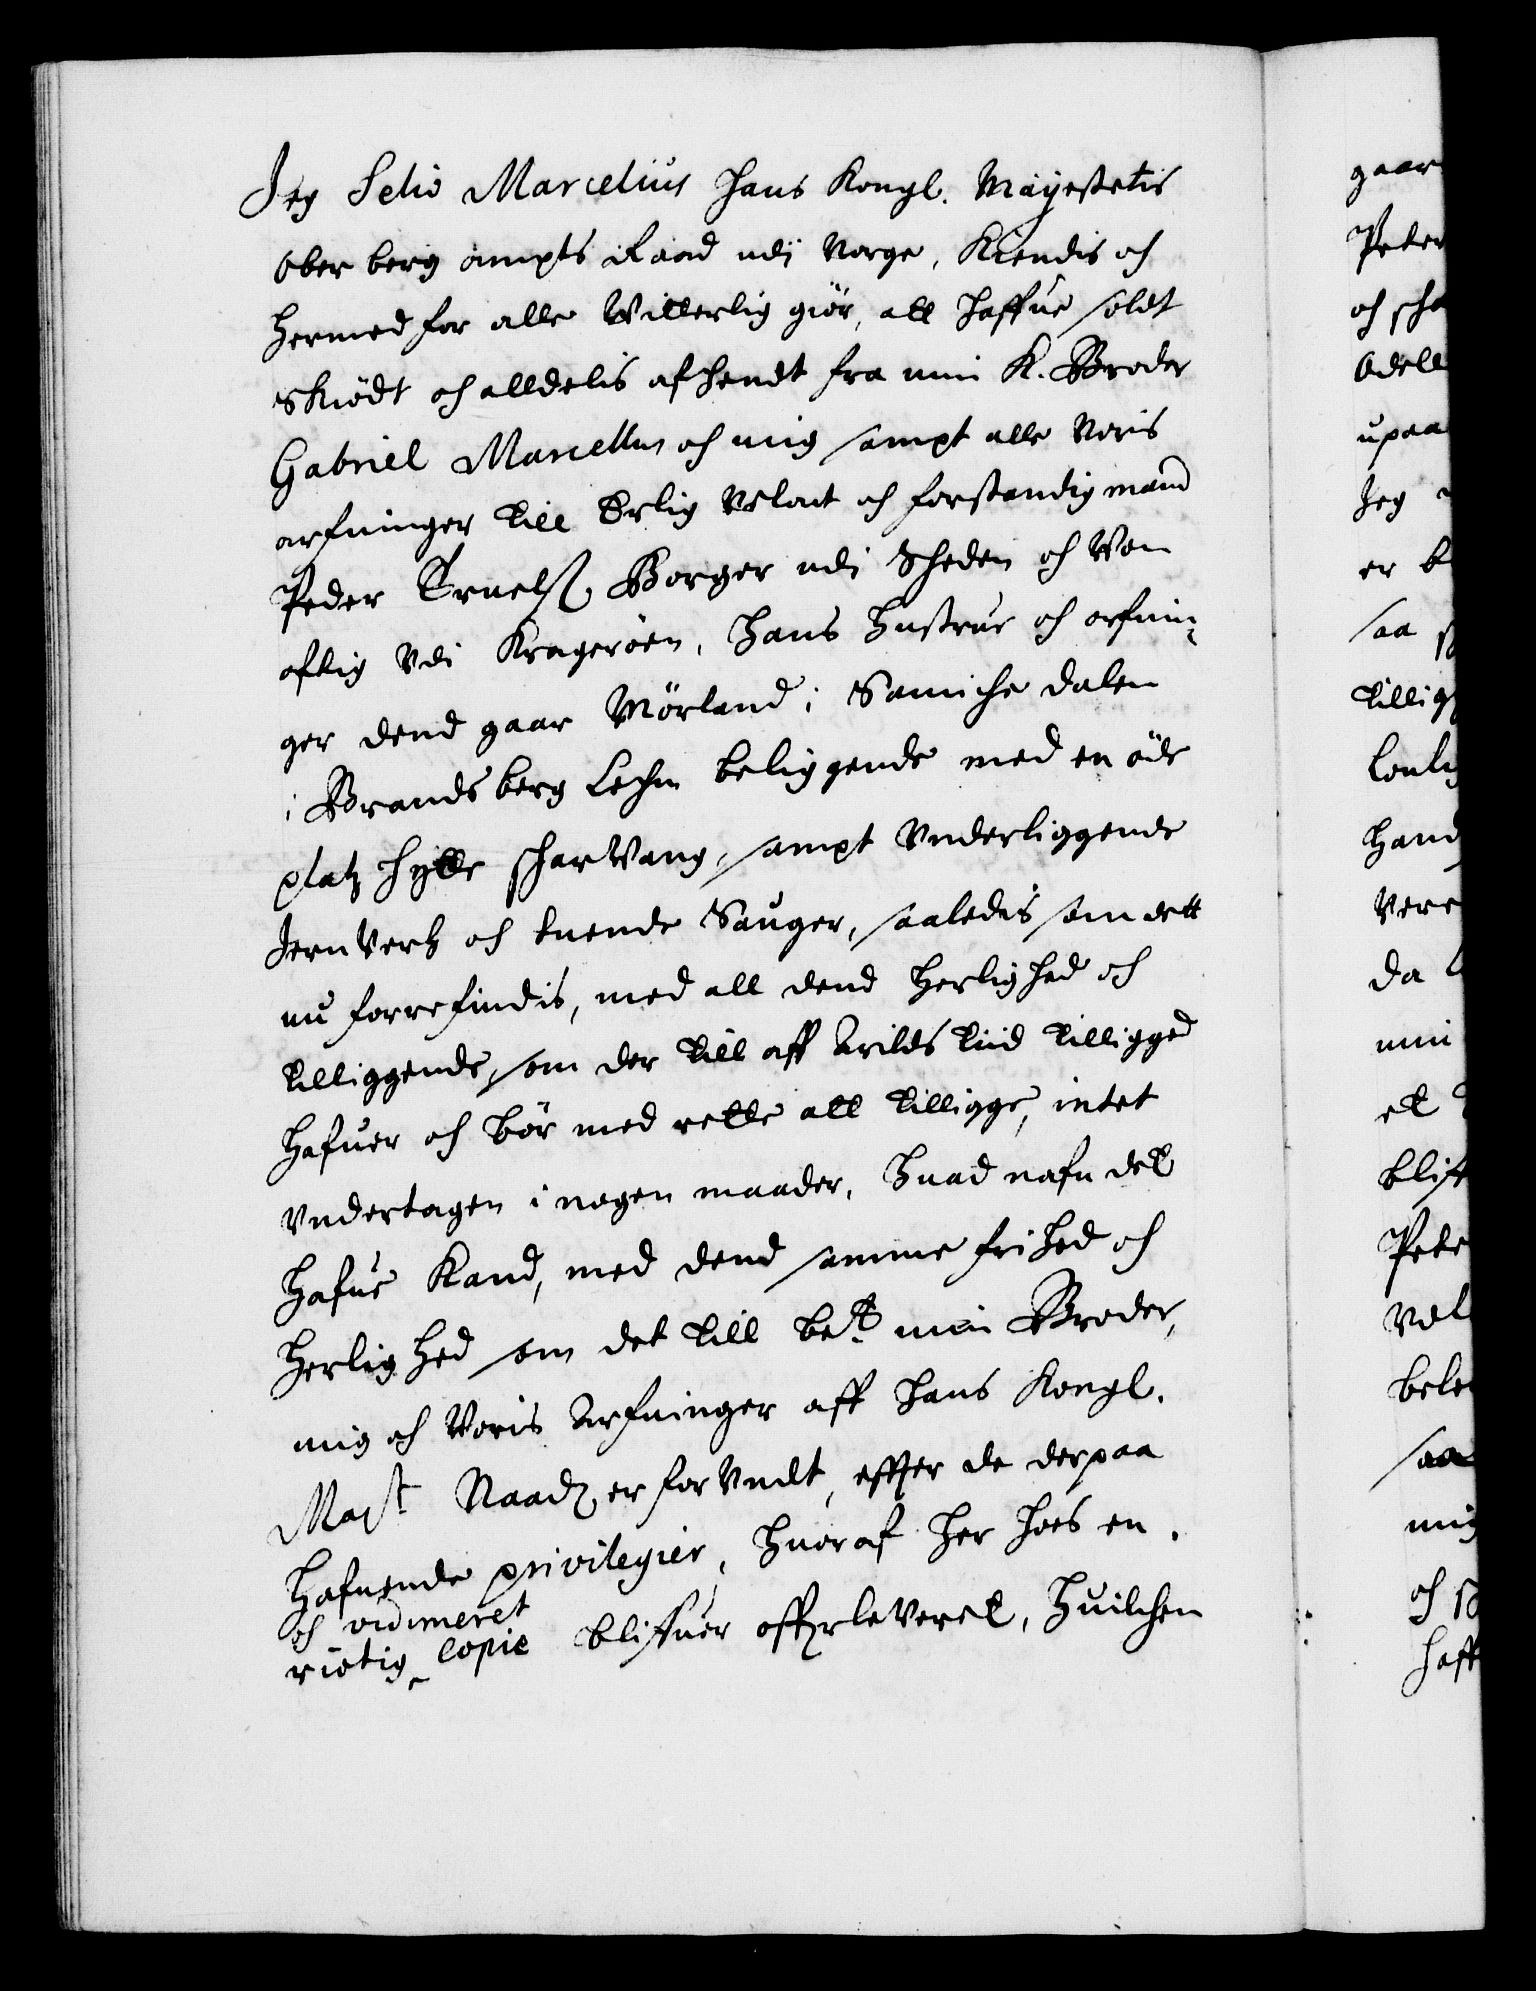 Jeg Selio Marcelius Hans Kongl. Mayestetis
Ober berg ampts Raad udj Norge, Kiendis och
hermed for alle Witterlig giör, att haffue soldt
Skiödt och alldelis afhendt fra min K. Broder
Gabriel Marcellus och mig sampt alle Voris
arfninger till Erlig Velact och forstandig mand
Peder Truelß Borger udi Scheden och Won
afftig Vdi Kragerøen, Hans Hustrue och arfnin-
ger dend gaar Mörland i Sannicke dalen
i Brandsberg Lehn beliggende med en øde
platz hytte schar Wang, sampt Vnderliggende
Jern Verk och tuende Sauger, saaledis som dett
nu forrefindis, med all dend Herlighed och
tilliggende, som der till aff Arilds tiid tilligged
hafuer och bör med rette att tilligge, intet
Vndertagen i nogen maader, Huad nafn det
hafue Kand, med dend samme frihed och
herlighed som det till be.t min Broder,
mig och Voris Arfninger aff Hans Kongl.
Mayst. Naade er for Vndt, effter de derpaa
hafuende privilegier, Huoraf her hoes en
och vidimeret
rictig copie blifuer offerleveret, Huilchen
gaar
Peter
och
Odell
upaa
Jeg
er
saa
hand
Vere
da
min
et
Pete
saa
mig
och
haff